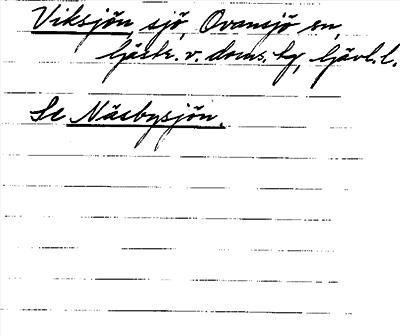 Viksjön, sjö, Ovansjö sn,
Gästr. v. doms. hg, Gävl. l.
Se Näsbysjön.